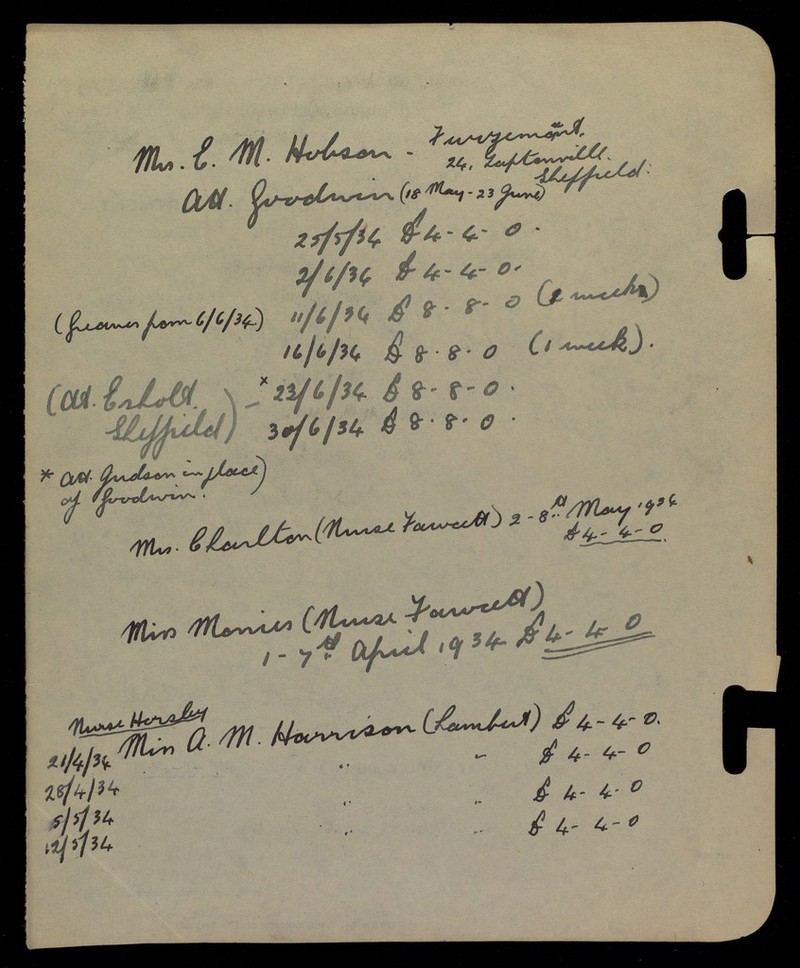 Mrs. E. M. Hobson - Furzemont,
24, Taptonville.
Sheffield.
Att. Goodwin (18 May - 23 June)
25/5/34 £4-4-0.
2/6/34 £4-4-0.
(Greaves from 6/6/34) 11/6/34 £8-8-0 (2 weeks)
16/6/34 £8.8.0 (1 week).
(Att. Erholt Sheffield) - *23/6/34 £8-8-0.
30/6/34 £8.8.0.
* Att. Judson in place)
of Goodwin.
Mrs. Charlton (Nurse Fawcett) 2-8th May 1934
£4-4-0.
Miss Morries (Nurse Fawcett)
1-7th April 1934 £4-4-0
Nurse Horsley
21/4/34 Miss A. M. Harrison (Lambert) £4-4-0.
28/4/34 " " £4-4-0
5/5/34 " " £4-4-0
12/5/34 " " £4-4-0